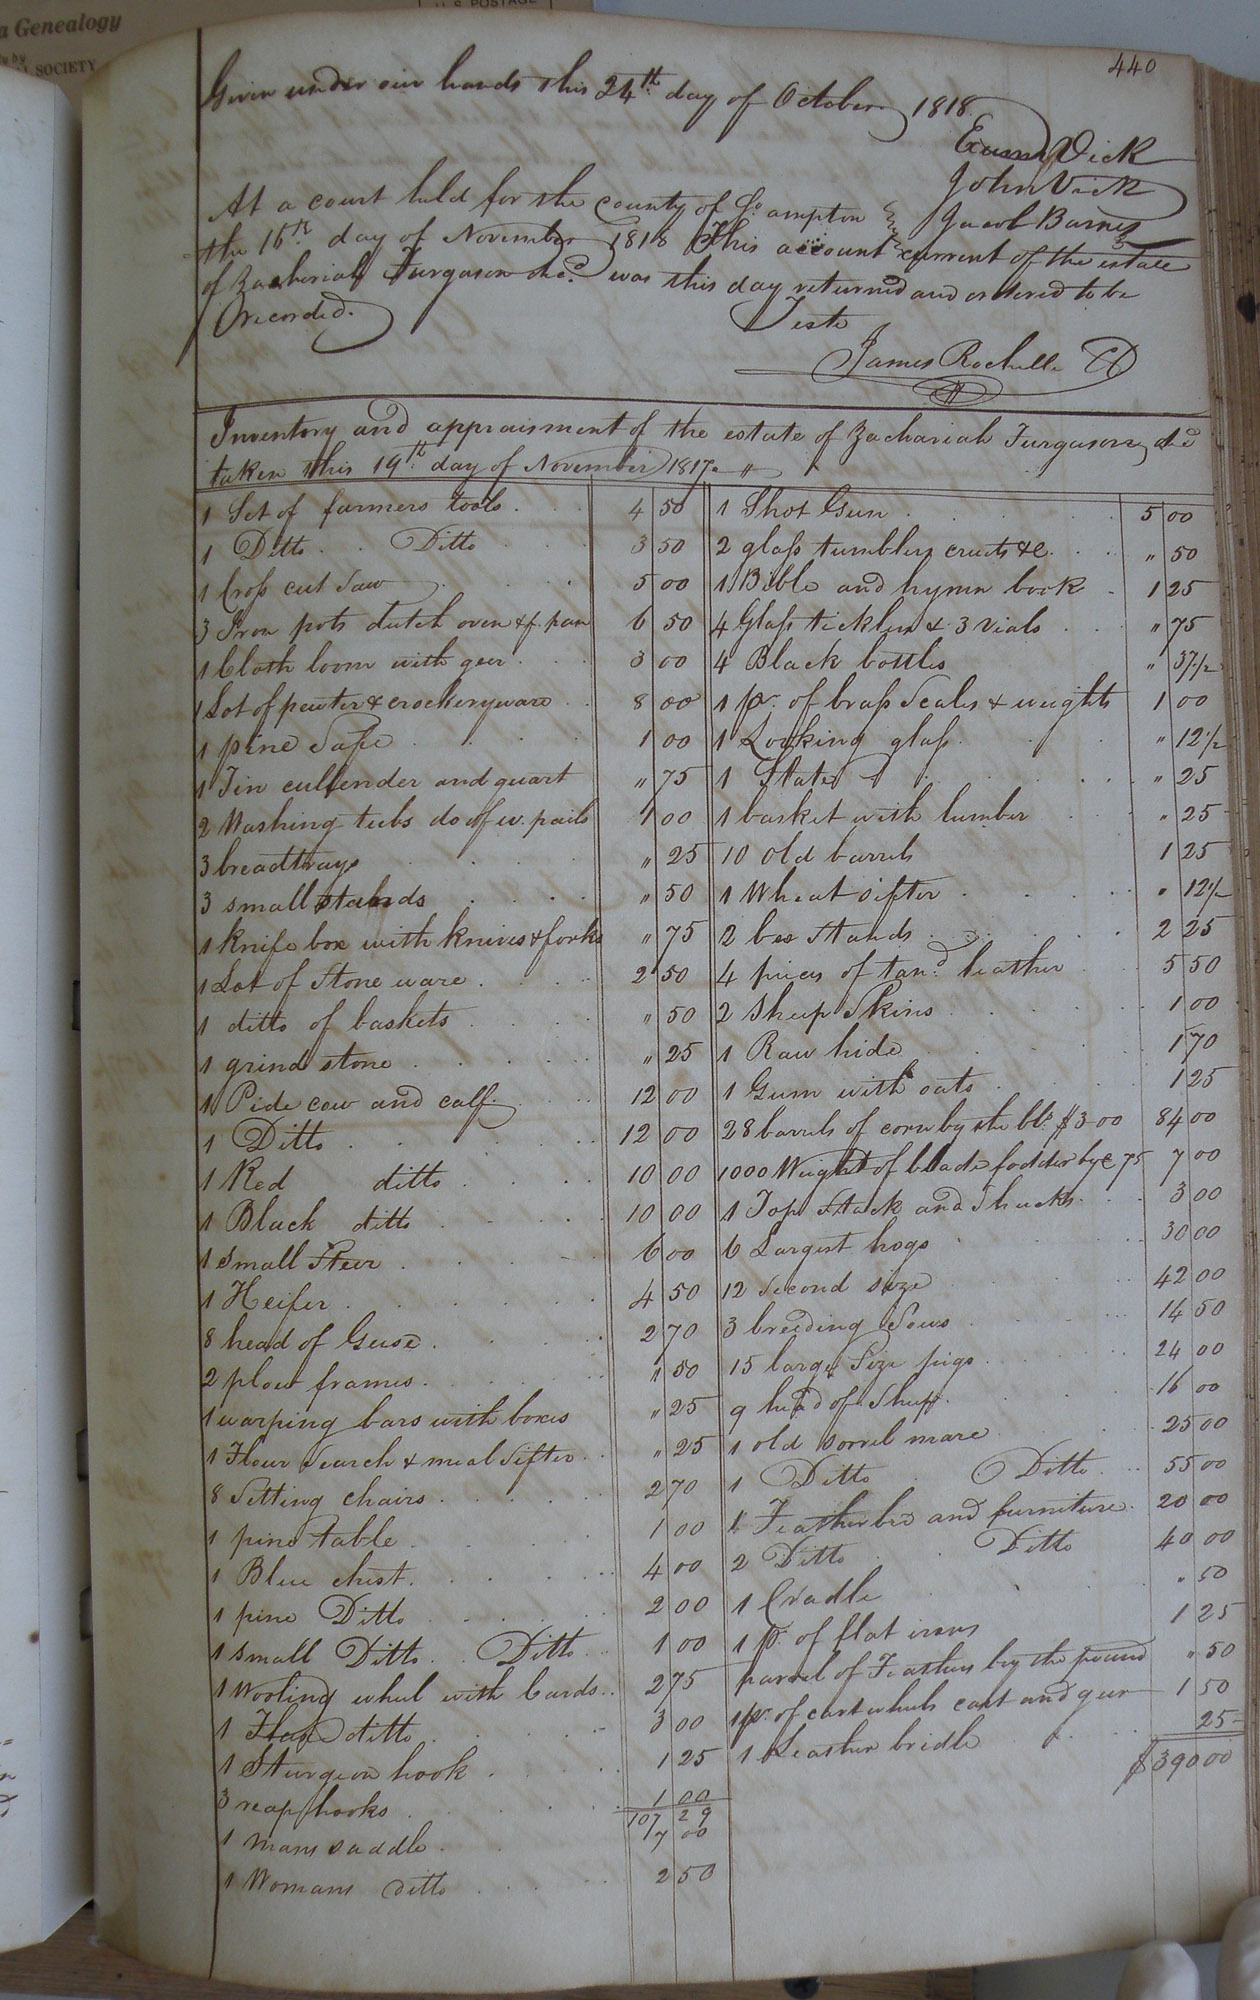 a Genealogy
SOCIETY
U.S. POSTAGE
440
Given under our hands this 24th day of October 1818.
Vick
John Vick
Jacob Barnes
At a court held for the county of So. ampton
the 16th day of November 1818 This account current of the estate
of Zachariah Furgason decd. was this day returned and ordered to be
recorded.
Teste
James Rochelle
Inventory and appraisment of the estate of Zachariah Furgason decd
taken this 19th day of November 1817. "
1 Set of farmers tools 4 50
1 Ditto Ditto 3 50
1 Cross cut Saw 5 00
3 Iron pots dutch oven & f. pan 6 50
1 Cloth loom with geer 3 00
1 Lot of pewter & crockeryware 8 00
1 pine Safe 1 00
1 Tin cullender and quart " 75
2 Washing tubs do of w. pails 1 00
3 breadtrays " 25
3 small stands " 50
1 Knife box with knives & forks " 75
1 Lot of Stone ware 2 50
1 ditto of baskets " 50
1 grind stone " 25
1 Pide cow and calf 12 00
1 Ditto 12 00
1 Red ditto 10 00
1 Black ditto 10 00
1 small Steer 6 00
1 Heifer 4 50
8 head of Geese 2 70
2 plow frames 1 50
1 warping bars with boxes " 25
1 Flour Search & meal Sifter " 25
8 Setting chairs 2 70
1 pine table 1 00
1 Blue chest 4 00
1 pine Ditto 2 00
1 small Ditto Ditto 1 00
1 Wooling wheel with Cards 2 75
1 Flax ditto 3 00
1 Sturgeon hook 1 25
3 reap hooks 1 00
107 29
1 mans saddle 7 00
1 Womans ditto 2 50
1 Shot Gun 5 00
2 glass tumblers cruets &c " 50
1 Bible and hymn book 1 25
4 Glass ticklers & 3 Vials " 75
4 Black bottles " 37 1/2
1 pr. of brass Scales & weights 1 00
1 Looking glass " 12 1/2
1 Slate " 25
1 basket with lumber " 25
10 old barrels 1 25
1 Wheat sifter " 12 1/2
2 bee Stands 2 25
4 pieces of tand. leather 5 50
2 Sheep Skins 1 00
1 Raw hide 1 70
1 Gum with oats 1 25
28 barrels of corn by the bl. $3 00 84 00
1000 Weight of blade fodder by c 75 7 00
1 Top Stack and Shucks 3 00
6 Largest hogs 30 00
12 Second size 42 00
3 breeding Sows 14 50
15 large Size pigs 24 00
9 head of Sheep 16 00
1 old sorrel mare 25 00
1 Ditto Ditto 55 00
1 Featherbed and furniture 20 00
2 Ditto Ditto 40 00
1 Cradle " 50
1 p. of flat irons 1 25
parcel of Feathers by the pound " 50
1 pr. of cartwheels cart and geer 1 50
1 Leather bridle 25
$390 00